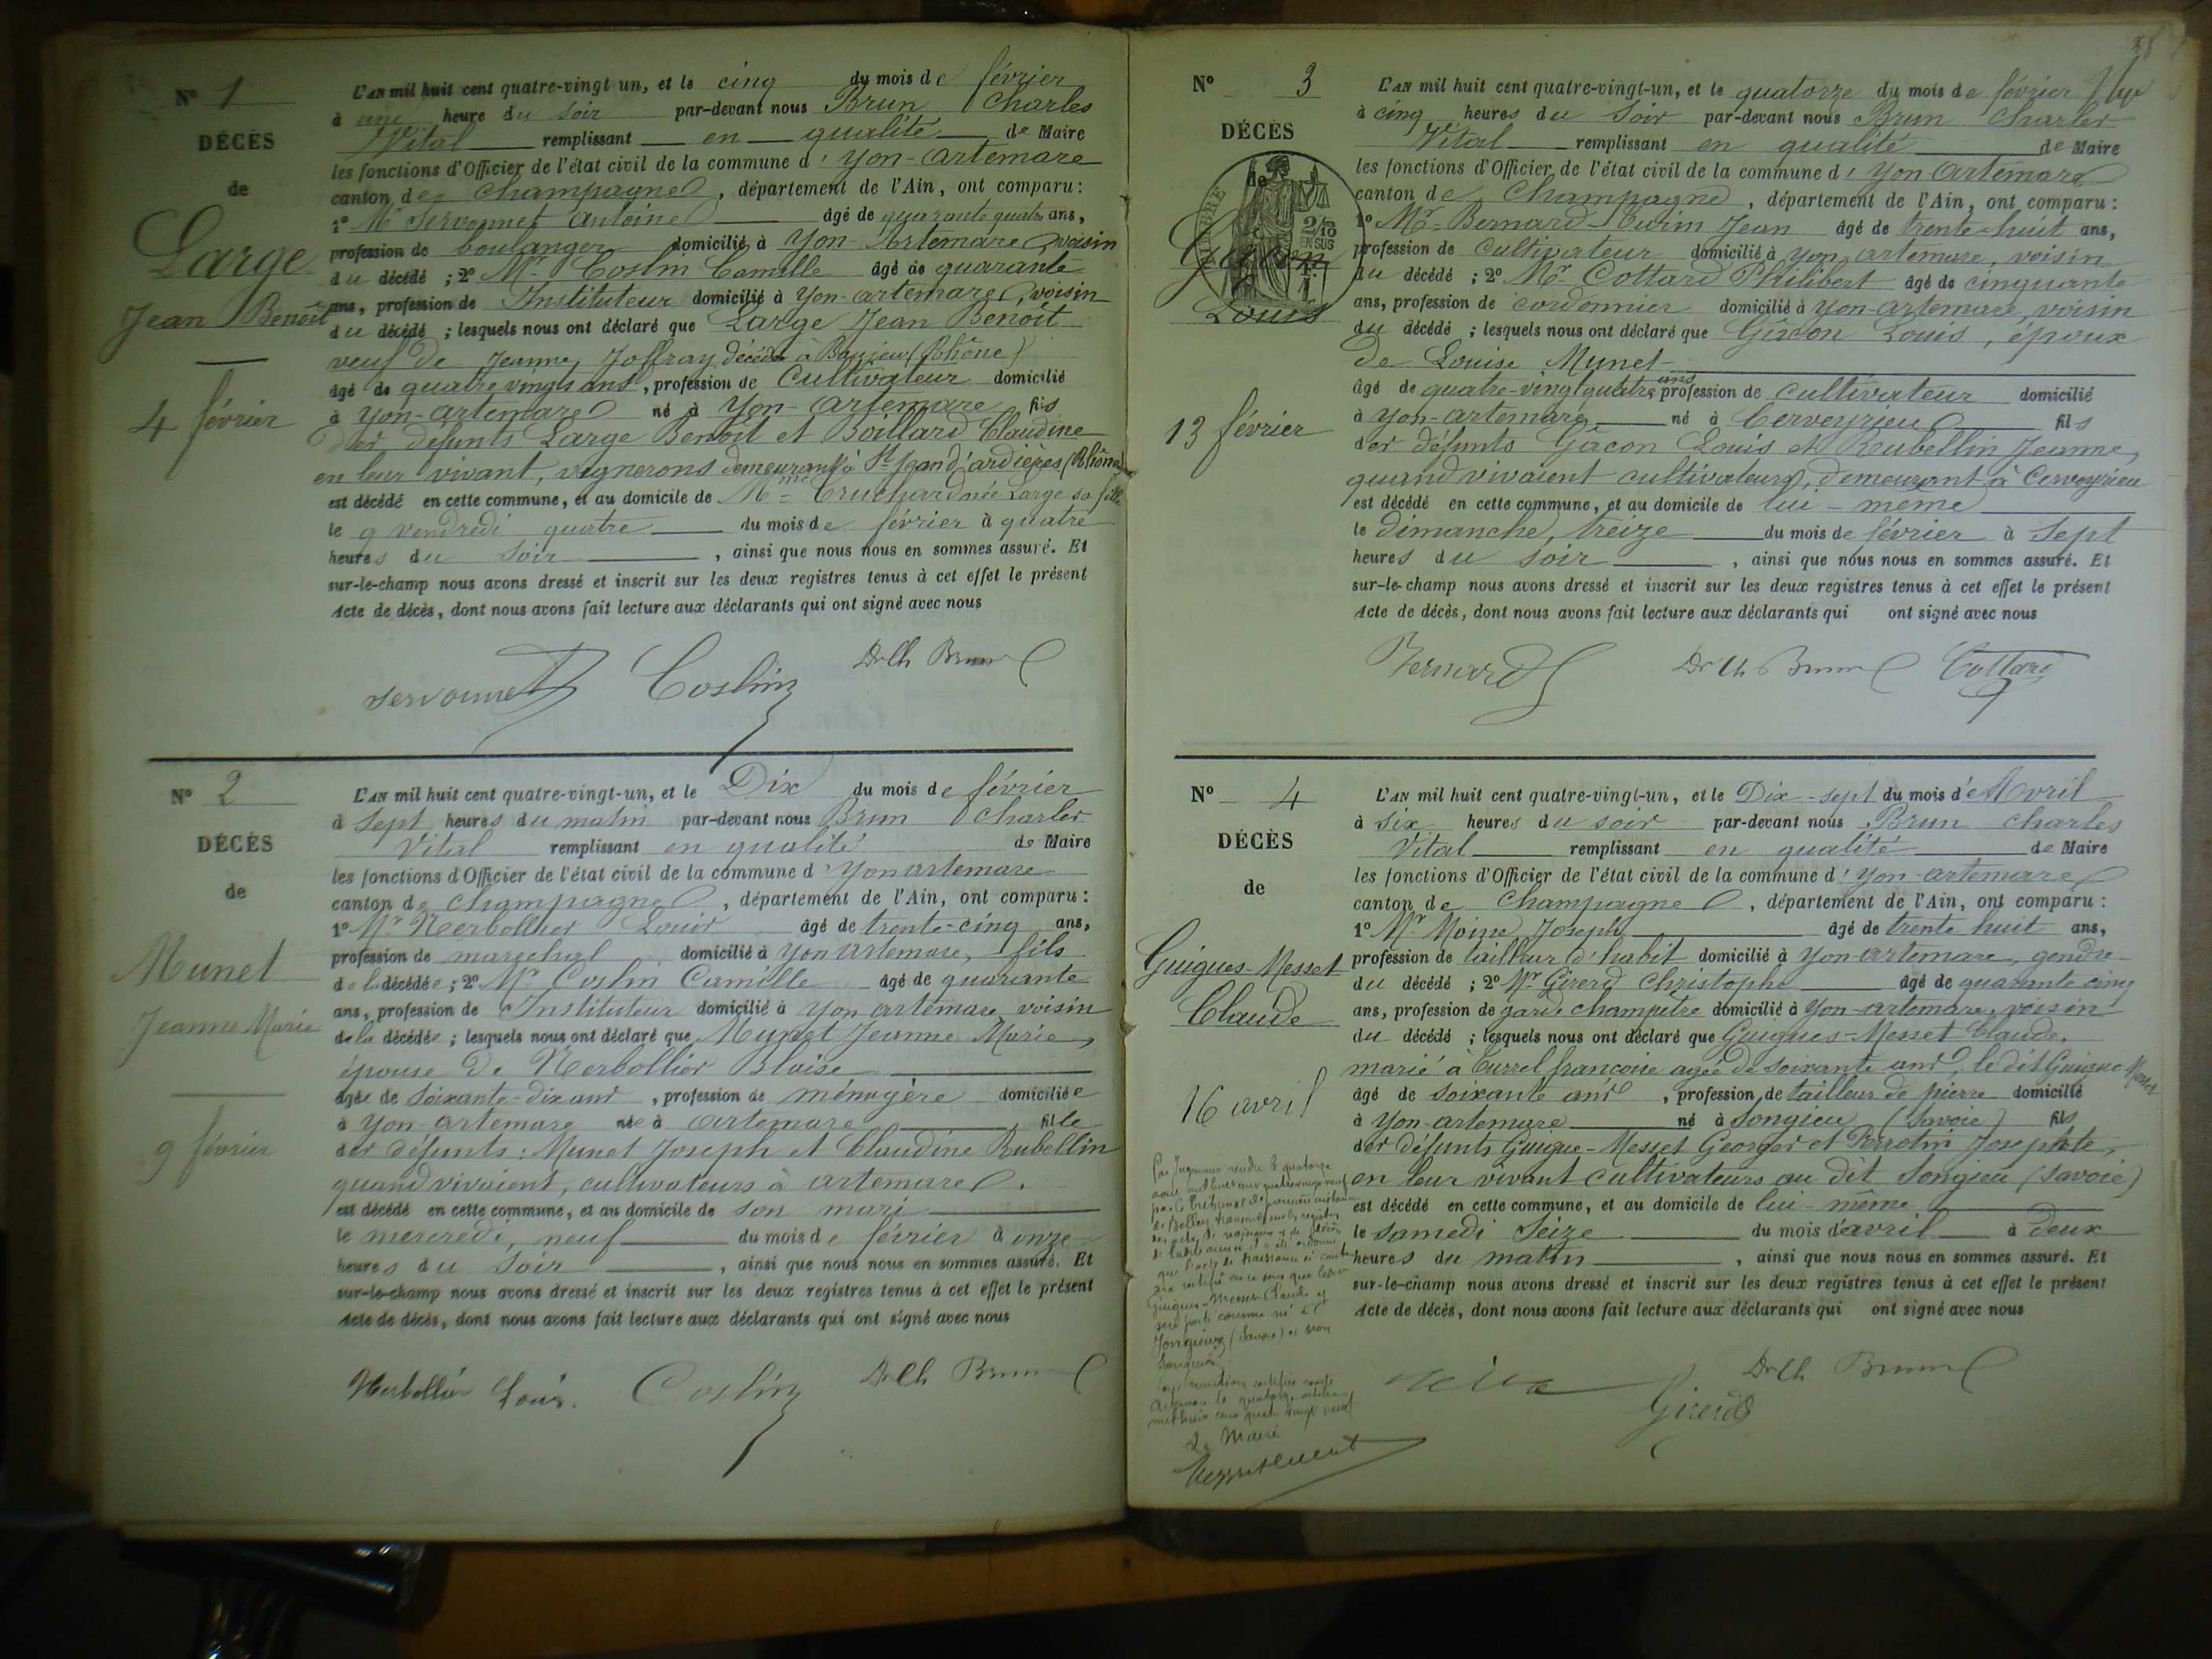 N° 1
DÉCÈS
de
Large
Jean Benoît
4 février
L'AN mil huit cent quatre-vingt un, et le cinq du mois de février
à une heure du soir par-devant nous Brun Charles
Vital remplissant en qualité de Maire
les fonctions d'Officier de l'état civil de la commune d'Yon-Artemare
canton de Champagne, département de l'Ain, ont comparu :
1° Mr Servonnet Antoine âgé de quarante quatre ans,
profession de boulanger domicilié à Yon-Artemare, voisin
du décédé ; 2° Mr Coslin Camille âgé de quarante
ans, profession de Instituteur domicilié à Yon-artemare, voisin
du décédé ; lesquels nous ont déclaré que Large Jean Benoit
veuf de Jeanne Joffray décédée à (Rhône)
âgé de quatre vingts ans, profession de Cultivateur domicilié
à Yon-artemare né à Yon-Artemare fils
der défunts Large Benoit et Boillard Claudine
en leur vivant, vignerons demeurant à St Jean d'ardières (Rhône)
est décédé en cette commune, et au domicile de Mme Cruchard née Large sa fille
le vendredi quatre du mois de février à quatre
heures du soir, ainsi que nous nous en sommes assuré. Et
sur-le-champ nous avons dressé et inscrit sur les deux registres tenus à cet effet le présent
Acte de décès, dont nous avons fait lecture aux déclarants qui ont signé avec nous
servonnet Coslin Dr Ch Brun
N° 2
DÉCÈS
de
Munet
Jeanne Marie
9 février
L'AN mil huit cent quatre-vingt-un, et le Dix du mois de février
à Sept heures du matin par-devant nous Brun Charles
Vital remplissant en qualité de Maire
les fonctions d'Officier de l'état civil de la commune d'Yon artemare
canton de Champagne, département de l'Ain, ont comparu :
1° Mr Nerbollier Louis âgé de trente-cinq ans,
profession de marechal domicilié à Yon artemare, fils
de la décédée ; 2° Mr Coslin Camille âgé de quarante
ans, profession de Instituteur domicilié à Yon artemare voisin
de la décédée ; lesquels nous ont déclaré que Munet Jeanne Marie,
épouse de Nerbollier Blaise
âgée de soixante-dix ans, profession de ménagère domiciliée
à Yon-artemare née à artemare fille
des défunts : Munet Joseph et Claudine Rubellin
quand vivaient, cultivateurs à artemare.
est décédé en cette commune, et au domicile de son mari
le mercredi, neuf du mois de février à onze
heures du soir, ainsi que nous nous en sommes assuré. Et
sur-le-champ nous avons dressé et inscrit sur les deux registres tenus à cet effet le présent
Acte de décès, dont nous avons fait lecture aux déclarants qui ont signé avec nous
Nerbollier Louis. Coslin Dr Ch Brun
N° 3
DÉCÈS
de
TIMBRE
2/10
EN SUS
Gacon
Louis
13 février
L'AN mil huit cent quatre-vingt-un, et le quatorze du mois de février
à cinq heures du soir par-devant nous Brun Charles
Vital remplissant en qualité de Maire
les fonctions d'Officier de l'état civil de la commune d'Yon-artemare
canton de Champagne, département de l'Ain, ont comparu :
1° Mr Bernard Jean âgé de trente-huit ans,
profession de Cultivateur domicilié à Yon artemare, voisin
du décédé ; 2° Mr Cottard Philibert âgé de cinquante
ans, profession de cordonnier domicilié à Yon-artemare, voisin
du décédé ; lesquels nous ont déclaré que Gacon Louis, époux
de Louise Munet
âgé de quatre-vingt quatre ans profession de cultivateur domicilié
à Yon-artemare né à Cerveyrieu fils
der défunts Gacon Louis et Rubellin Jeanne,
quand vivaient cultivateurs, demeurant à Cerveyrieu
est décédé en cette commune, et au domicile de lui-même
le dimanche, treize du mois de février à Sept
heures du soir, ainsi que nous nous en sommes assuré. Et
sur-le-champ nous avons dressé et inscrit sur les deux registres tenus à cet effet le présent
Acte de décès, dont nous avons fait lecture aux déclarants qui ont signé avec nous
Bernard Dr Ch Brun Cottard
N° 4
DÉCÈS
de
Guigues-Messet
Claude
16 avril
L'AN mil huit cent quatre-vingt-un, et le Dix-sept du mois d'Avril
à six heures du soir par-devant nous Brun Charles
Vital remplissant en qualité de Maire
les fonctions d'Officier de l'état civil de la commune d'Yon-artemare
canton de Champagne, département de l'Ain, ont comparu :
1° Mr Moine Joseph âgé de trente huit ans,
profession de tailleur d'habit domicilié à Yon-artemare, gendre
du décédé ; 2° Mr Girerd Christophe âgé de quarante cinq
ans, profession de garde champêtre domicilié à Yon-artemare, voisin
du décédé ; lesquels nous ont déclaré que Guigues-Messet Claude.
marié à Currel françoise agée de soixante ans, le dit Guigue Messet
âgé de soixante ans, profession de tailleur de pierre domicilié
à Yon-artemare né à Songieu (Savoie) fils
der défunts Guigue-Messet Georges et Perrotin Josephte,
en leur vivant cultivateurs au dit Songieu (Savoie)
est décédé en cette commune, et au domicile de lui-même
le samedi Seize du mois d'avril à deux
heures du matin, ainsi que nous nous en sommes assuré. Et
sur-le-champ nous avons dressé et inscrit sur les deux registres tenus à cet effet le présent
Acte de décès, dont nous avons fait lecture aux déclarants qui ont signé avec nous
Dr Ch Brun
Girerd
Par Jugement rendu le quatorze
août mil huit cent quatre vingt neuf
par le Tribunal de première instance
de Belley
que l'acte de naissance ci contre
rectifié en ce sens que
Guigues-Messet Claude
sera porté comme né à
Jongieux (Savoie) et non
Songieu
le quatorze octobre
mil huit cent quatre vingt neuf
Le Maire